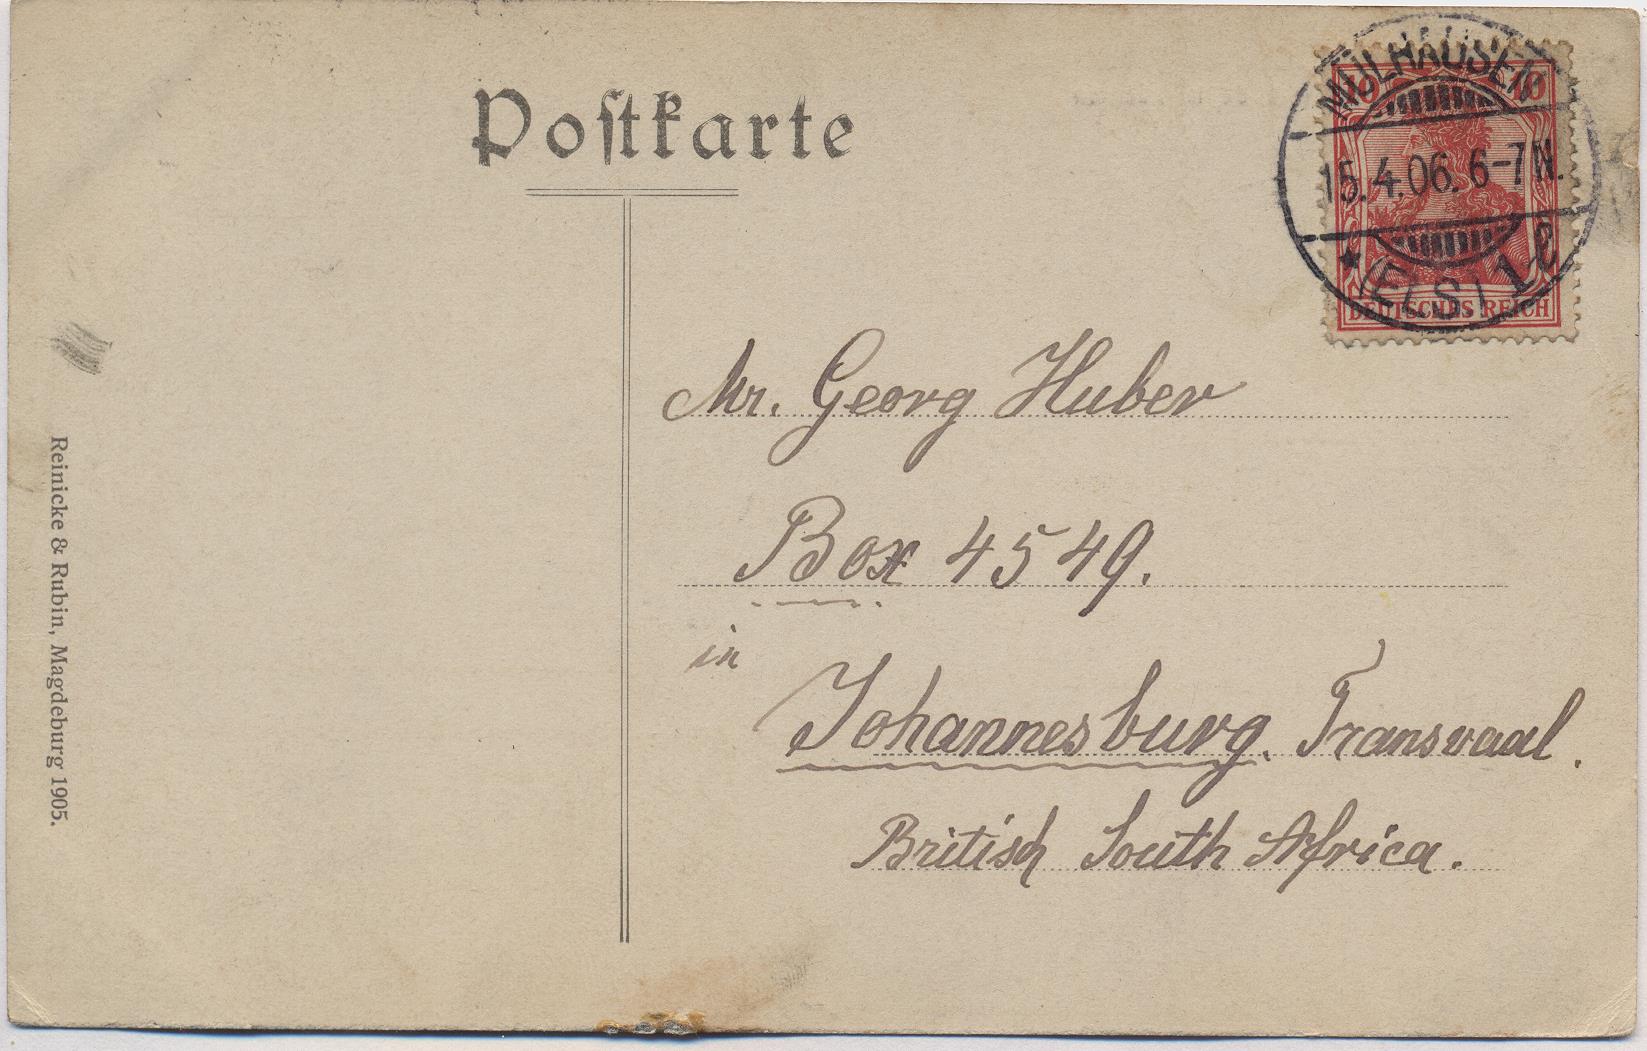 Postkarte
MÜLHAUSEN
10 10
15.4.06. 6-7 N.
* (ELS) 1 e
DEUTSCHES REICH
Mr. Georg Huber
Box 4549.
in
Johannesburg. Transvaal.
British South Africa.
Reinicke & Rubin, Magdeburg 1905.